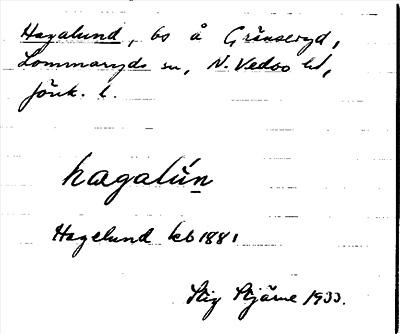 Hagalund, bs å Gräsaeryd,
Lommaryds sn, N. Vedbo hd,
Jönk. l.
hagalún
Hagelund kb 1881
Stig Stjärne 1933.